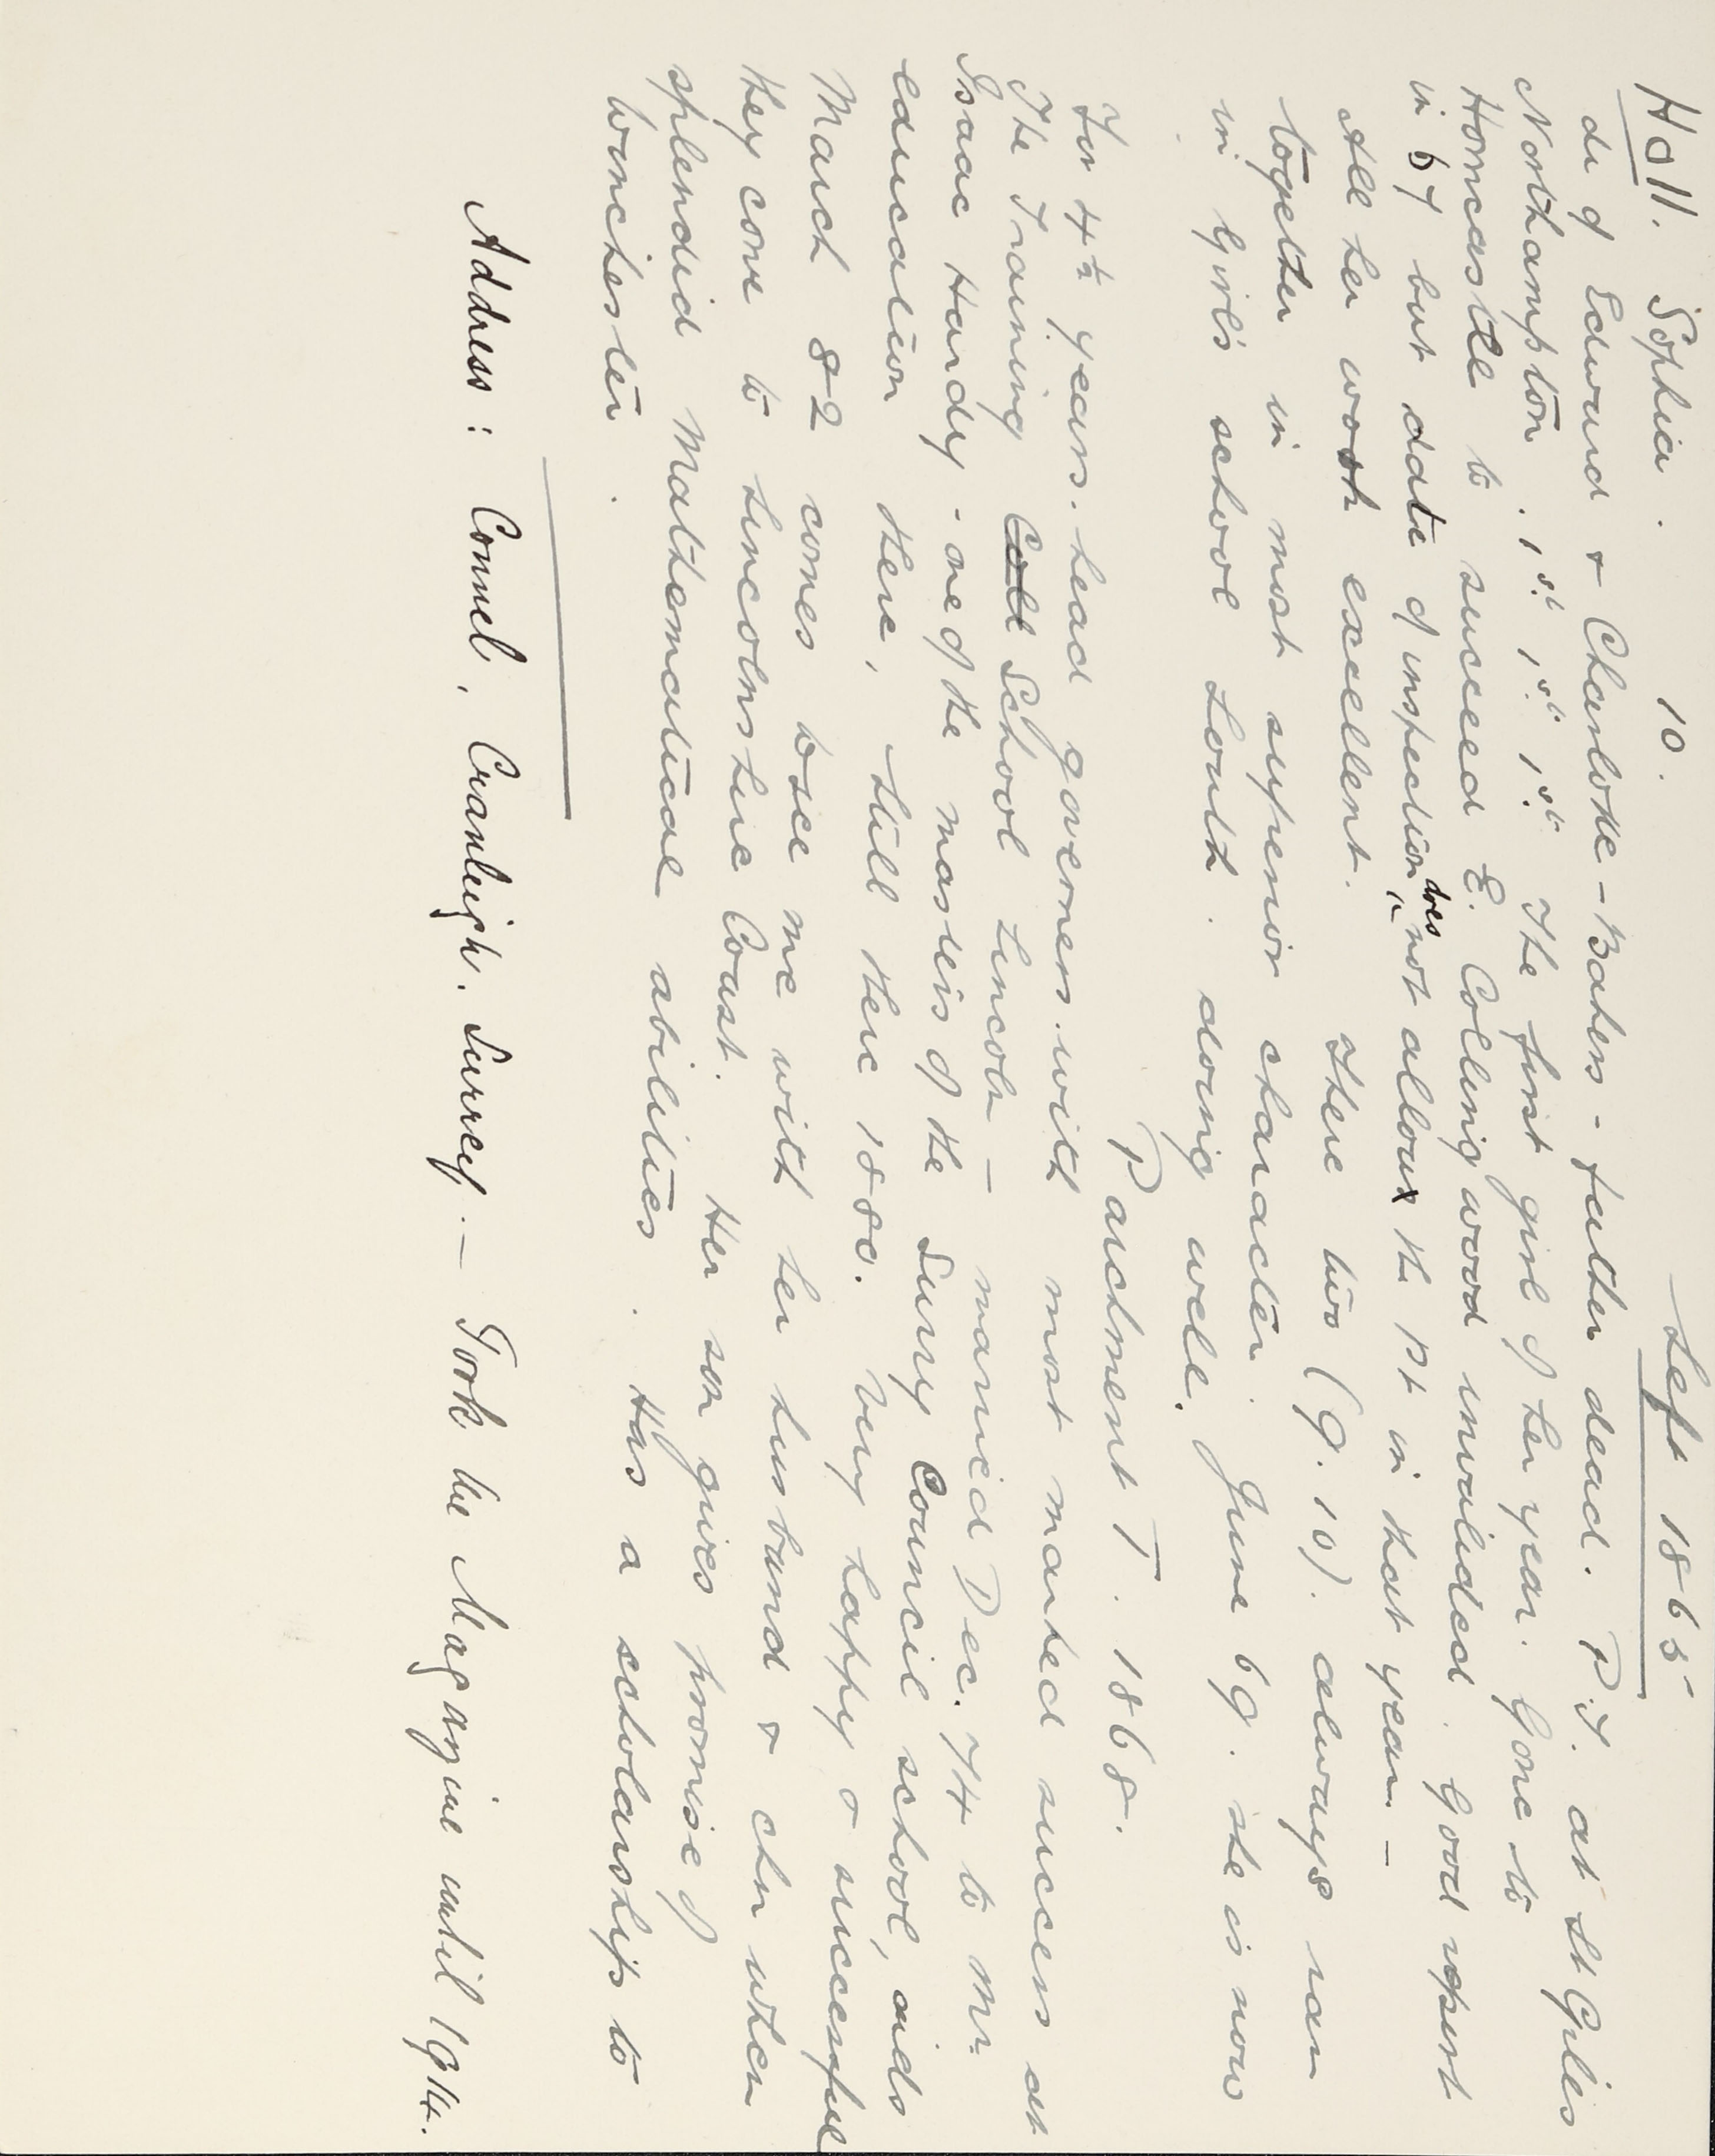 Hall. Sophia. 10. Left 1865
d. of Edward & Charlotte - Baker - father dead. P.T. at St Giles
Northampton. 1st. 1st. 1st. The first girl of her year. Gone to
Horncastle to succeed E. Collingwood invalided. Good report
in 67 but date of inspection does not allow the Pt in that year. -
All her work excellent. These two (9. 10). always ran
together in most superior character. June 69. She is now
in Girls school Louth. doing well.
Parchment T. 1868.
For 4½ years. head governess. with most marked success at
The Training Coll School Lincoln - married Dec. 74 to Mr.
Isaac Handy - one of the masters of the Surrey Council school, aids
education there, still there 1880. Very happy & successful
March 82 comes to see me with her husband & chn when
they come to Lincolnshire Coast. Her son gives promise of
splendid Mathematical abilities. Has a scholarship to
Winchester.
Address: Connel, Cranleigh. Surrey. - Took the Magazine until 1914.